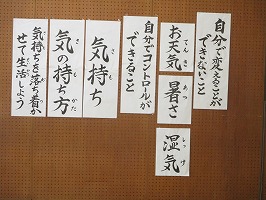 自分で変えることが
できないこと
お天気
てんき
暑さ
あつ
湿気
しっけ
自分でコントロールが
できること
気持ち
きも
気の持ち方
き も かた
気持ちを落ち着か
せて生活しよう